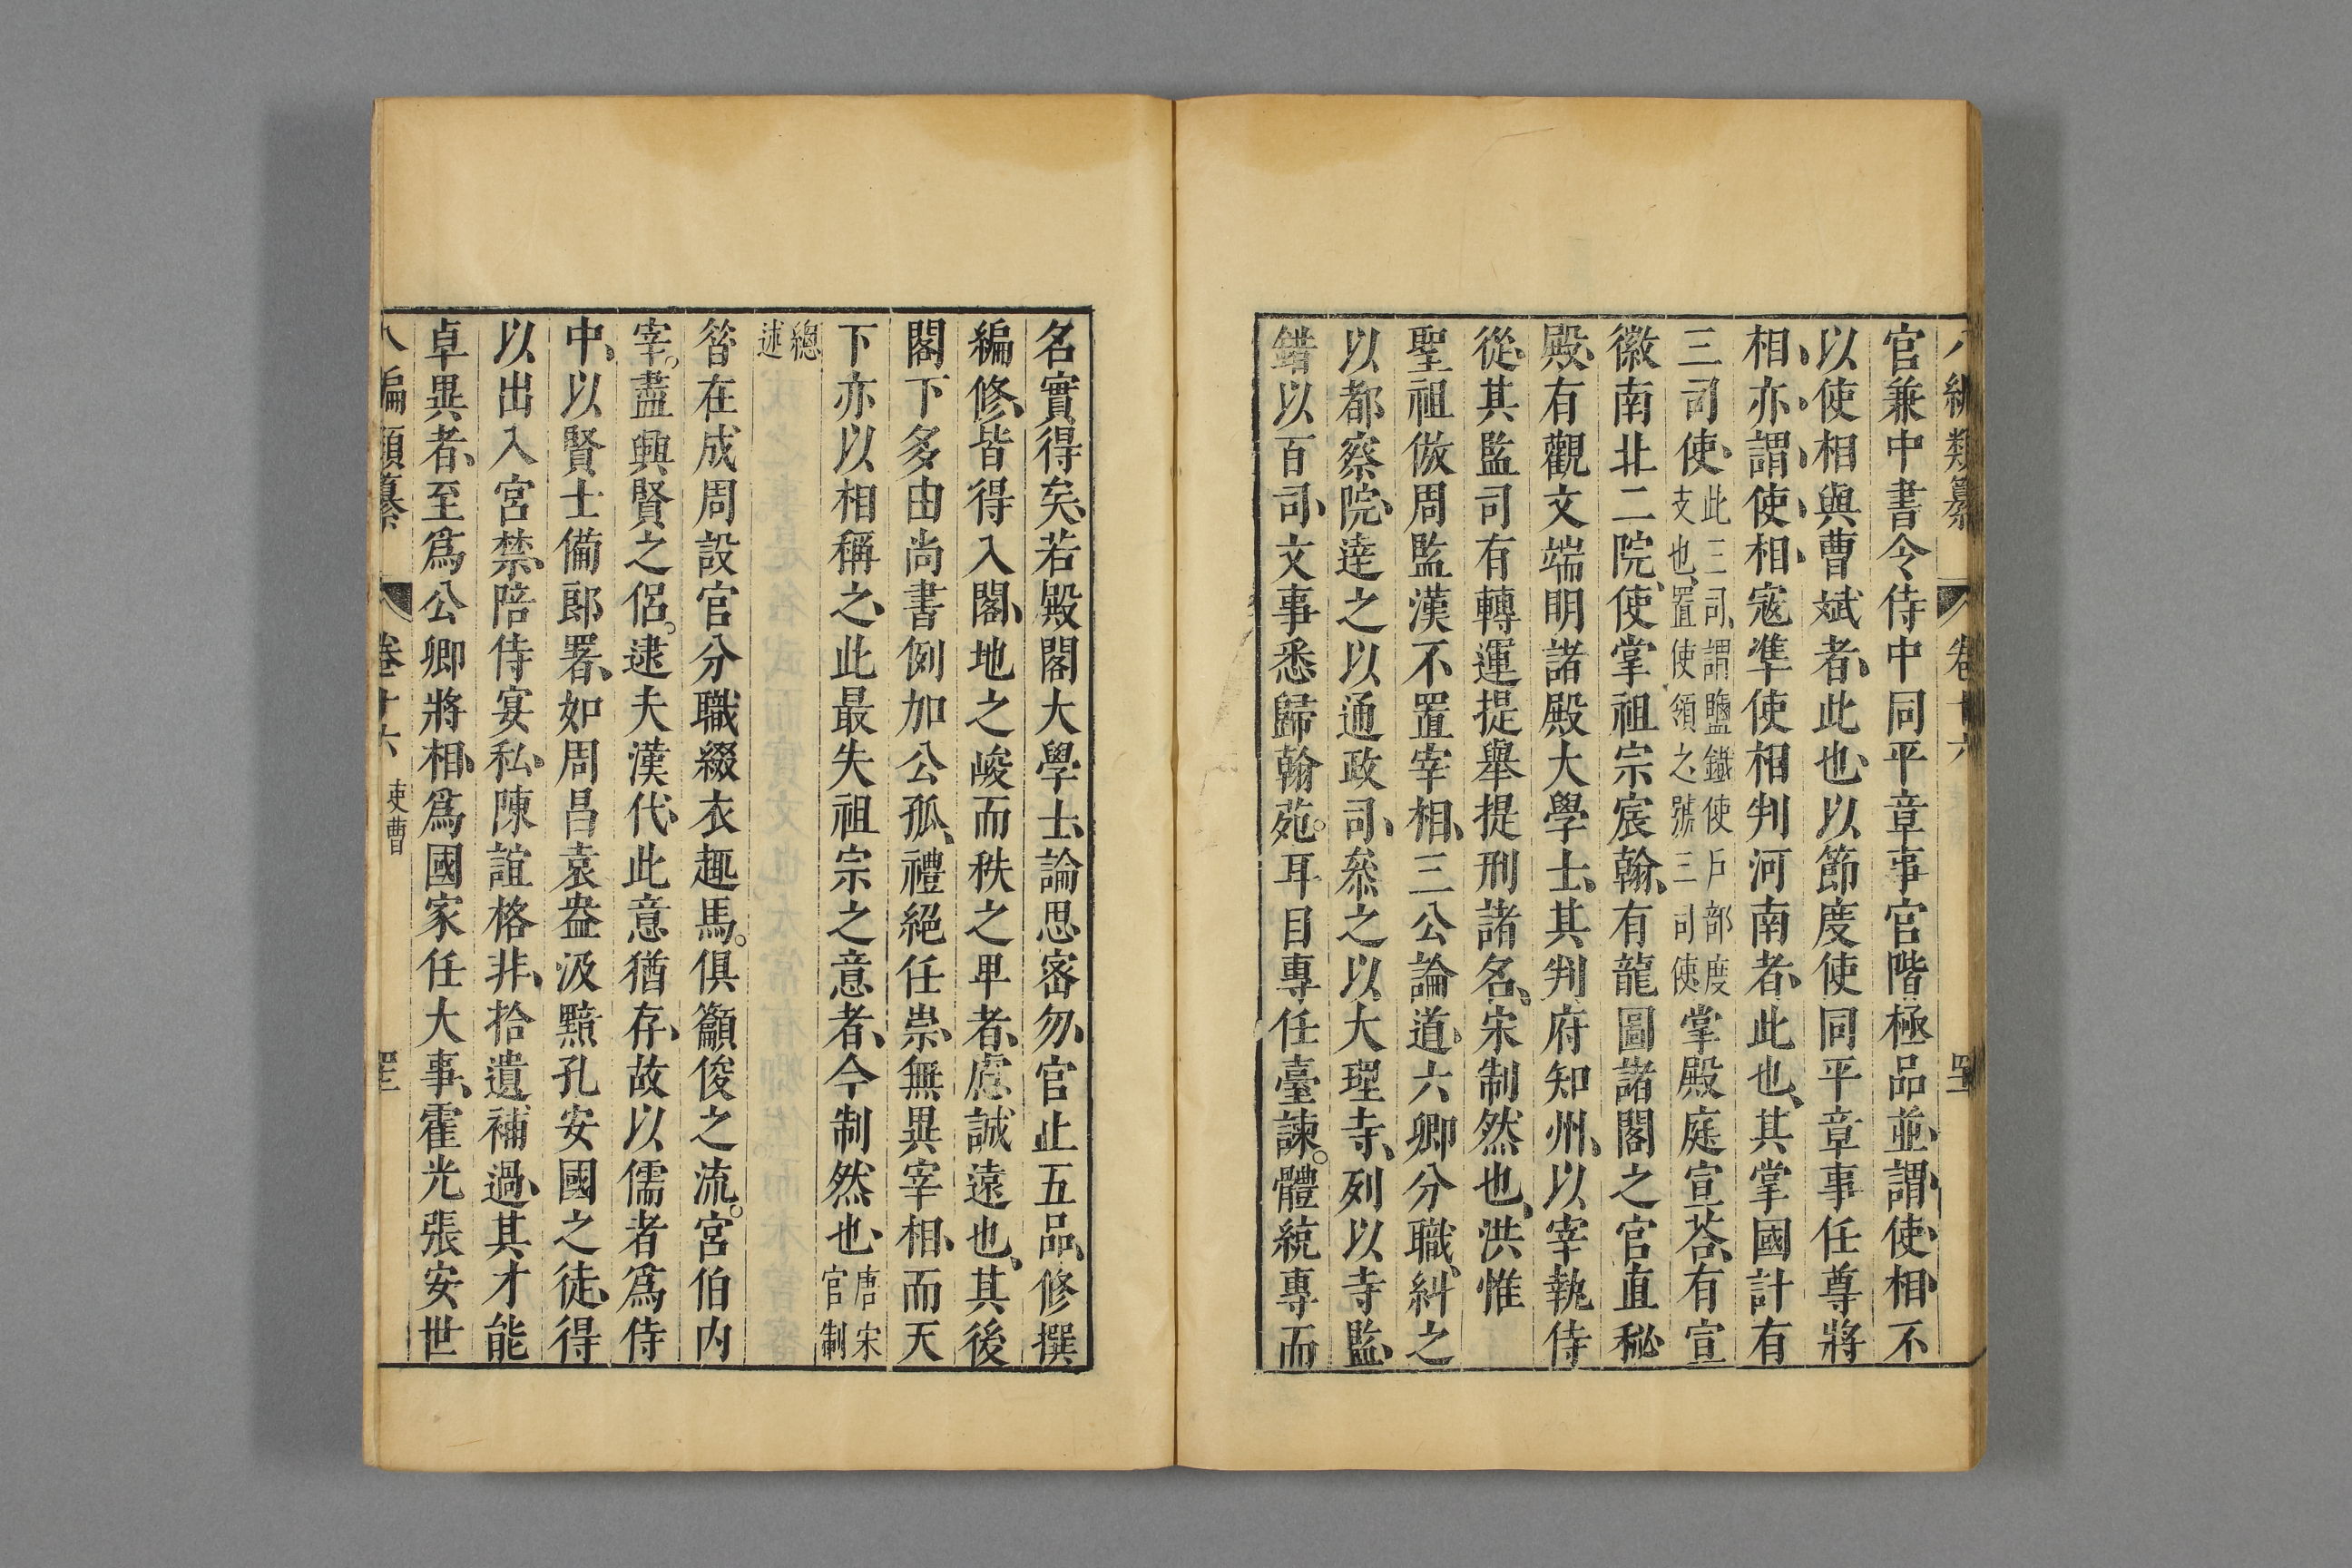 八編類纂 卷十六
官兼中書令侍中同平章事官階極品並謂使相不
以使相與曹斌者此也以節度使同平章事任尊將
相亦謂使相寇準使相判河南者此也其掌國計有
三司使此三司謂鹽鐵使戶部度支也置使領之號三司使掌殿庭宣荅有宣
徽南北二院使掌祖宗宸翰有龍圖諸閣之官直秘
殿有觀文端明諸殿大學士其判府知州以宰執侍
從其監司有轉運提舉提刑諸名宋制然也洪惟
聖祖倣周監漢不置宰相三公論道六卿分職糾之
以都察院達之以通政司叅之以大理寺列以寺監
錯以百司文事悉歸翰苑耳目專任臺諫體統專而
名實得矣若殿閣大學士論思密勿官止五品修撰
編修皆得入閣地之峻而秩之卑者慮誠遠也其後
閣下多由尚書例加公孤禮絕任崇無異宰相而天
下亦以相稱之此最失祖宗之意者今制然也唐宋官制
總述
昝在成周設官分職綴衣趣馬俱籲俊之流宮伯内
宰盡興賢之侶逮夫漢代此意猶存故以儒者爲侍
中以賢士備郎署如周昌袁盎汲黯孔安國之徒得
以出入宮禁陪侍宴私陳誼格非拾遺補過其才能
卓異者至爲公卿將相爲國家任大事霍光張安世
八編類纂 卷十六 吏曹